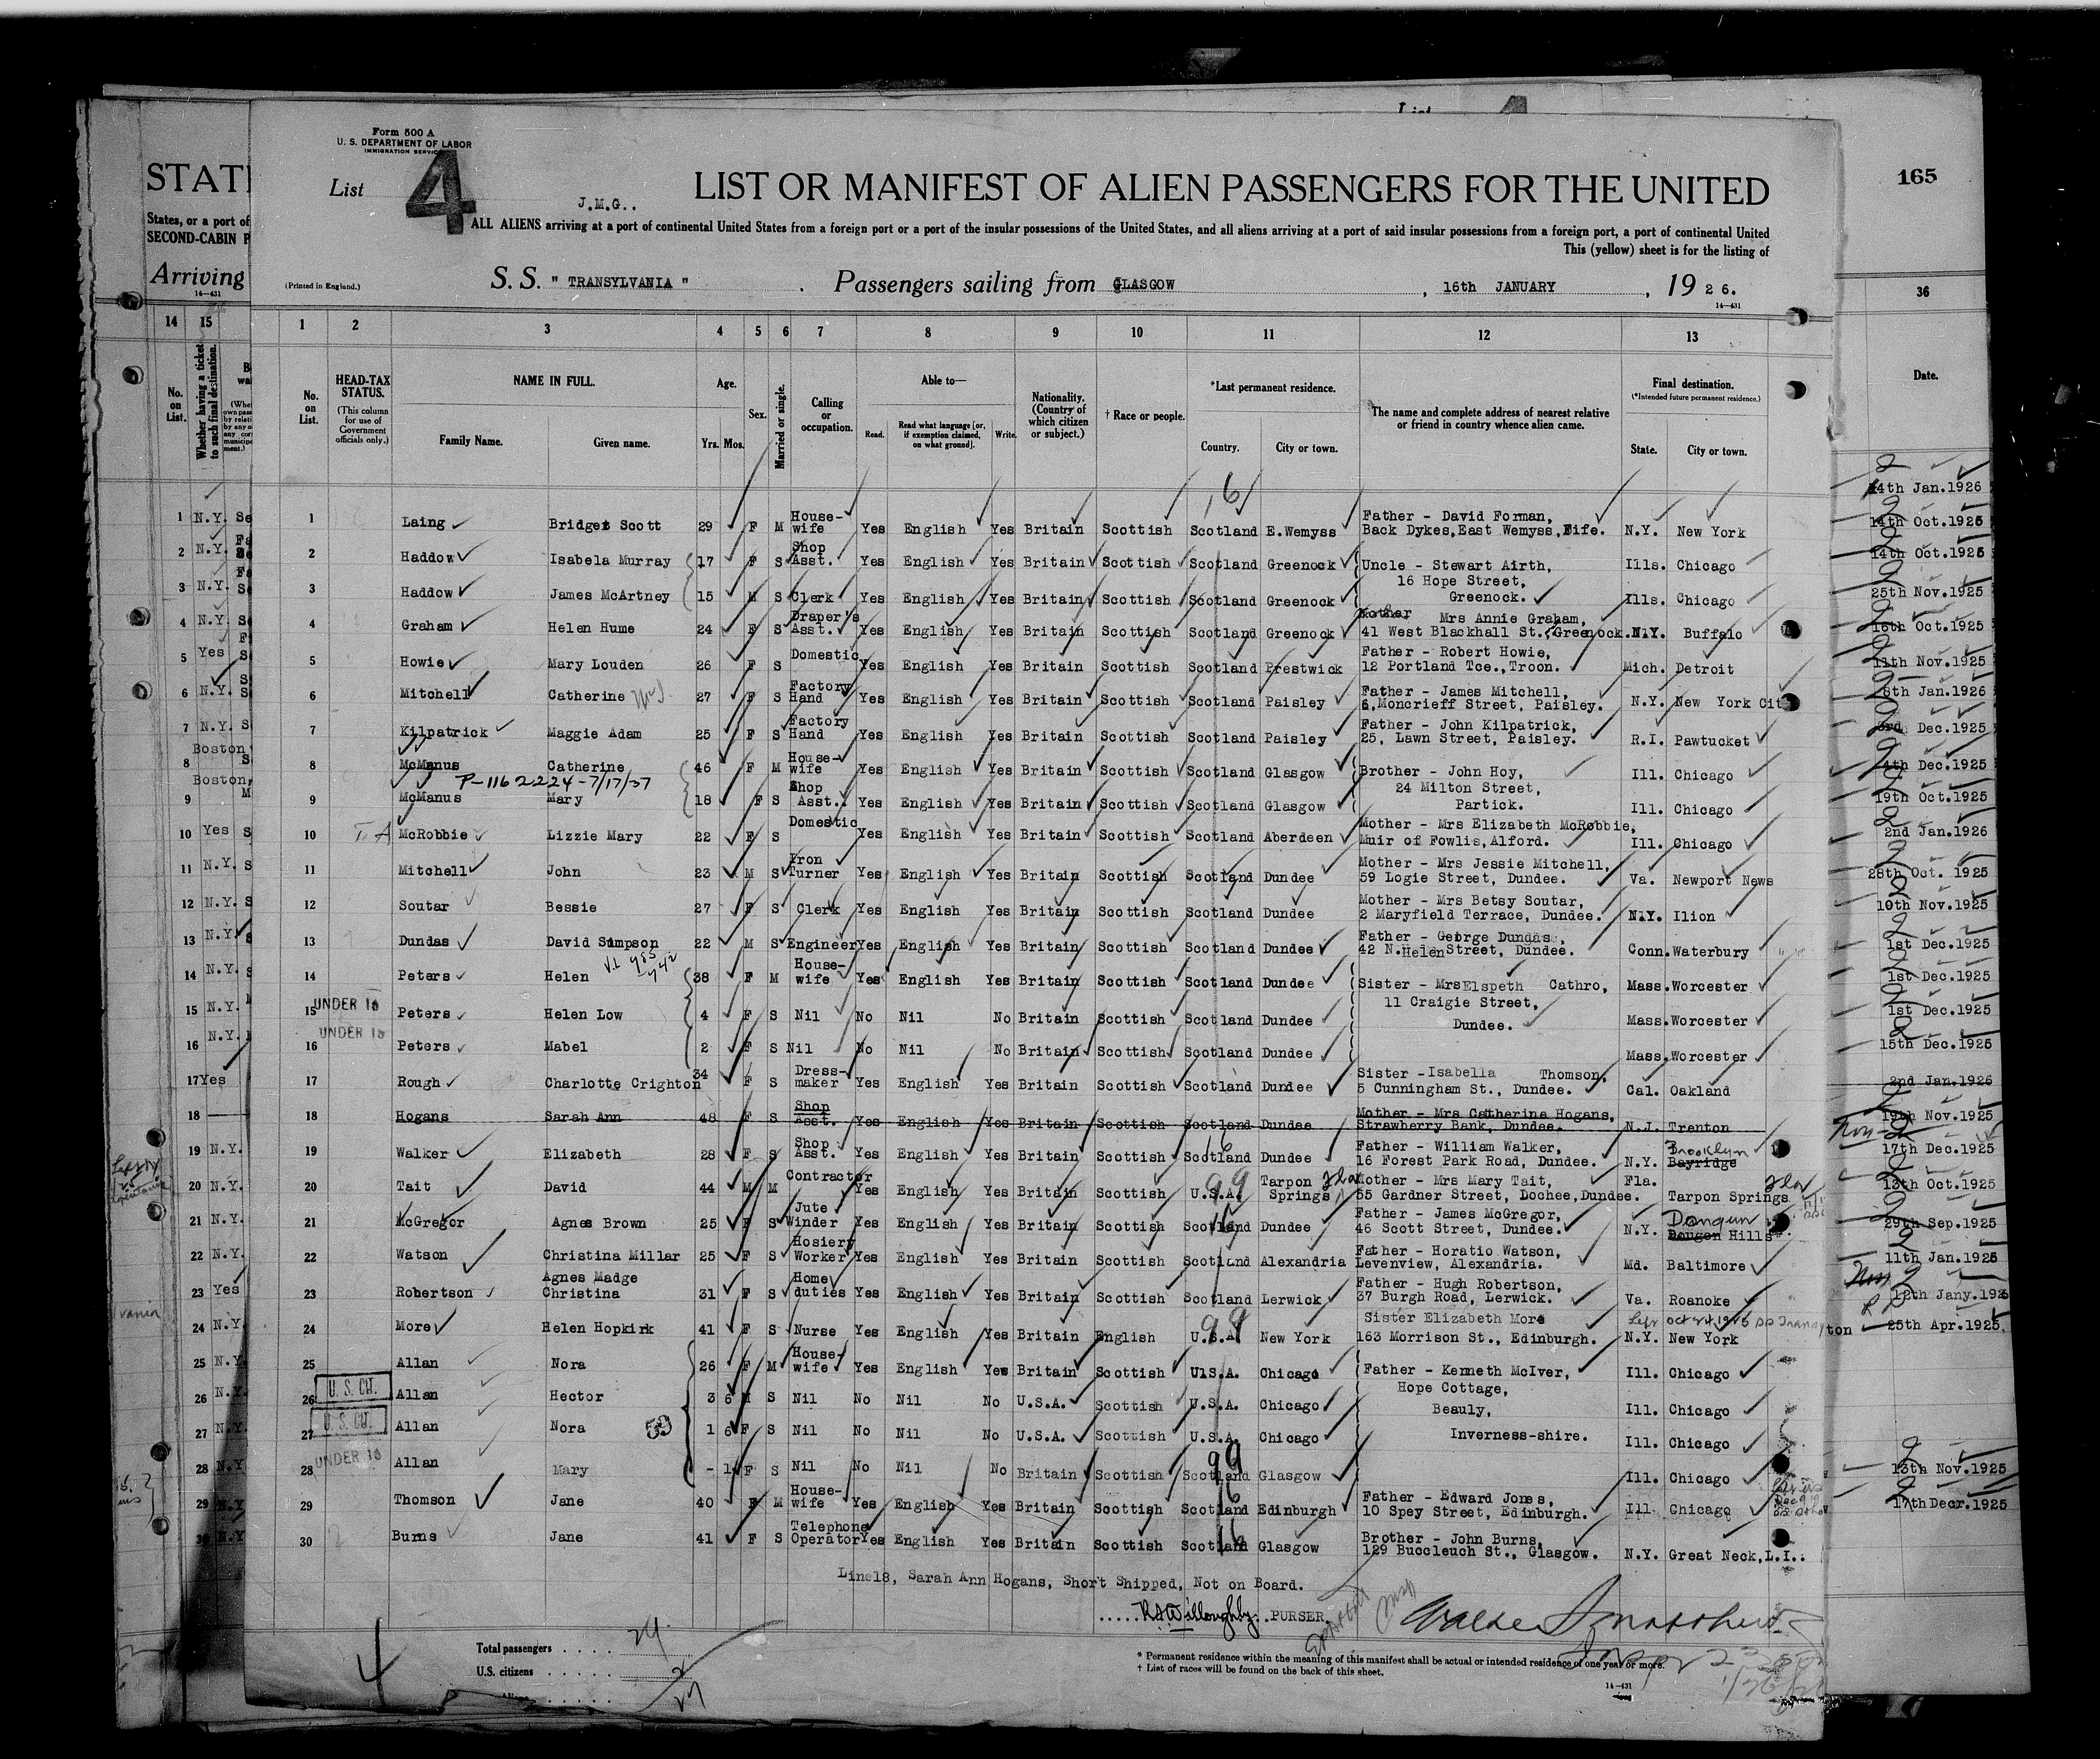 Form 500 A
U. S. DEPARTMENT OF LABOR
IMMIGRATION SERVICE
List 4
J.M.G..
LIST OR MANIFEST OF ALIEN PASSENGERS FOR THE UNITED
ALL ALIENS arriving at a port of continental United States from a foreign port or a port of the insular possessions of the United States, and all aliens arriving at a port of said insular possessions from a foreign port, a port of continental United
This (yellow) sheet is for the listing of
(Printed in England.)
S. S. " TRANSYLVANIA " . Passengers sailing from GLASGOW , 16th JANUARY , 19 2 6.
14—431
1 2 3 4 5 6 7 8 9 10 11 12 13
No. on List.
HEAD-TAX STATUS.
(This column for use of Government officials only.)
NAME IN FULL.
Family Name. Given name.
Age.
Yrs. Mos.
Sex.
Married or single.
Calling or occupation.
Able to—
Read. Read what language [or, if exemption claimed, on what ground]. Write.
Nationality. (Country of which citizen or subject.)
† Race or people.
*Last permanent residence.
Country. City or town.
The name and complete address of nearest relative or friend in country whence alien came.
Final destination.
(*Intended future permanent residence.)
State. City or town.
16
1 Laing Bridget Scott 29 F M House-wife Yes English Yes Britain Scottish Scotland E.Wemyss Father - David Forman, Back Dykes,East Wemyss,Fife. N.Y. New York
2 Haddow Isabela Murray 17 F S Shop Asst. Yes English Yes Britain Scottish Scotland Greenock Uncle - Stewart Airth, 16 Hope Street, Greenock. Ills. Chicago
3 Haddow James McArtney 15 M S Clerk Yes English Yes Britain Scottish Scotland Greenock Ills. Chicago
4 Graham Helen Hume 24 F S Draper's Asst. Yes English Yes Britain Scottish Scotland Greenock Mother Mrs Annie Graham, 41 West Blackhall St.,Greenock. N.Y. Buffalo
5 Howie Mary Louden 26 F S Domestic Yes English Yes Britain Scottish Scotland Prestwick Father - Robert Howie, 12 Portland Tce.,Troon. Mich. Detroit
6 Mitchell Catherine 27 F S Factory Hand Yes English Yes Britain Scottish Scotland Paisley Father - James Mitchell, 6,Moncrieff Street, Paisley. N.Y. New York Cit
7 Kilpatrick Maggie Adam 25 F S Factory Hand Yes English Yes Britain Scottish Scotland Paisley Father - John Kilpatrick, 25, Lawn Street, Paisley. R.I. Pawtucket
8 McManus Catherine 46 F M House-wife Yes English Yes Britain Scottish Scotland Glasgow Brother - John Hoy, 24 Milton Street, Partick. Ill. Chicago
P-1162224-7/17/37
9 McManus Mary 18 F S Shop Asst. Yes English Yes Britain Scottish Scotland Glasgow Ill. Chicago
10 McRobbie Lizzie Mary 22 F S Domestic Yes English Yes Britain Scottish Scotland Aberdeen Mother - Mrs Elizabeth McRobbie, Muir of Fowlis,Alford. Ill. Chicago
11 Mitchell John 23 M S Iron Turner Yes English Yes Britain Scottish Scotland Dundee Mother - Mrs Jessie Mitchell, 59 Logie Street, Dundee. Va. Newport News
12 Soutar Bessie 27 F S Clerk Yes English Yes Britain Scottish Scotland Dundee Mother - Mrs Betsy Soutar, 2 Maryfield Terrace, Dundee. N.Y. Ilion
13 Dundas David Simpson 22 M S Engineer Yes English Yes Britain Scottish Scotland Dundee Father - George Dundas, 42 N.Helen Street, Dundee. Conn. Waterbury
14 Peters Helen 38 F M House-wife Yes English Yes Britain Scottish Scotland Dundee Sister - Mrs Elspeth Cathro, 11 Craigie Street, Dundee. Mass. Worcester
UNDER 16
15 Peters Helen Low 4 F S Nil No Nil No Britain Scottish Scotland Dundee Mass. Worcester
UNDER 16
16 Peters Mabel 2 F S Nil No Nil No Britain Scottish Scotland Dundee Mass. Worcester
17 Rough Charlotte Crighton 34 F S Dress-maker Yes English Yes Britain Scottish Scotland Dundee Sister -Isabella Thomson, 5 Cunningham St., Dundee. Cal. Oakland
18 Hogans Sarah Ann 48 F S Shop Asst. Yes English Yes Britain Scottish Scotland Dundee Mother - Mrs Catherine Hogans, Strawberry Bank, Dundee. N.J. Trenton
19 Walker Elizabeth 28 F S Shop Asst. Yes English Yes Britain Scottish Scotland Dundee Father - William Walker, 16 Forest Park Road, Dundee. N.Y. Brooklyn Bayridge
20 Tait David 44 M M Contractor Yes English Yes Britain Scottish U.S.A. Tarpon Springs Fla Mother - Mrs Mary Tait, 55 Gardner Street, Lochee,Dundee. Fla. Tarpon Springs
21 McGregor Agnes Brown 25 F S Jute Winder Yes English Yes Britain Scottish Scotland Dundee Father - James McGregor, 46 Scott Street, Dundee. N.Y. Dongun Dougon Hills
22 Watson Christina Millar 25 F S Hosiery Worker Yes English Yes Britain Scottish Scotland Alexandria Father - Horatio Watson, Levenview, Alexandria. Md. Baltimore
23 Robertson Agnes Madge Christina 31 F S Home duties Yes English Yes Britain Scottish Scotland Lerwick Father - Hugh Robertson, 37 Burgh Road, Lerwick. Va. Roanoke
24 More Helen Hopkirk 41 F S Nurse Yes English Yes Britain English U.S.A. New York Sister Elizabeth More 163 Morrison St., Edinburgh. N.Y. New York
25 Allan Nora 26 F M House-wife Yes English Yes Britain Scottish U.S.A. Chicago Father - Kenneth McIver, Hope Cottage, Beauly, Inverness-shire. Ill. Chicago
U. S. CIT.
26 Allan Hector 3 6 M S Nil No Nil No U.S.A. Scottish U.S.A. Chicago Ill. Chicago
U. S. CIT.
27 Allan Nora 1 6 F S Nil No Nil No U.S.A. Scottish U.S.A. Chicago Ill. Chicago
UNDER 16
28 Allan Mary - 1 F S Nil No Nil No Britain Scottish Scotland Glasgow Ill. Chicago
29 Thomson Jane 40 F M House-wife Yes English Yes Britain Scottish Scotland Edinburgh Father - Edward Jones, 10 Spey Street, Edinburgh. Ill Chicago
30 Burns Jane 41 F S Telephone Operator Yes English Yes Britain Scottish Scotland Glasgow Brother - John Burns, 129 Buccleuch St., Glasgow. N.Y. Great Neck,L.I.
Line18, Sarah Ann Hogans, Short Shipped, Not on Board.
.....R.A.Willoughby..PURSER.
Total passengers . . . . .
U.S. citizens . . . . . .
* Permanent residence within the meaning of this manifest shall be actual or intended residence of one year or more.
† List of races will be found on the back of this sheet.
14—431
4
STAT
States, or a port of
SECOND-CABIN P
Arriving
14—431
14 15
No. on List.
Whether having a ticket to such final destination.
1 N.Y.
2 N.Y.
3 N.Y.
4 N.Y.
5 Yes
6 N.Y.
7 N.Y.
8 Boston
9 Boston
10 Yes
11 N.Y.
12 N.Y.
13 N.Y.
14 N.Y.
15 N.Y.
16 N.Y.
17 Yes
18
19 N.Y.
20 N.Y.
21 N.Y.
22 N.Y.
23 Yes
24 N.Y
25 N.Y.
26 N.Y.
27 N.Y
28 N.Y
29 N.Y
30 N.Y
165
36
Date.
14th Jan.1926
14th Oct.1925
14th Oct.1925
25th Nov.1925
16th Oct.1925
11th Nov.1925
8th Jan.1926
3rd Dec.1925
4th Dec.1925
19th Oct.1925
2nd Jan.1926
28th Oct. 1925
10th Nov.1925
1st Dec.1925
1st Dec.1925
1st Dec.1925
15th Dec.1925
2nd Jan.1926
19th Nov.1925
17th Dec.1925
13th Oct.1925
29th Sep.1925
11th Jan.1926
12th Jany.192
25th Apr.1925
13th Nov.1925
17th Decr.1925